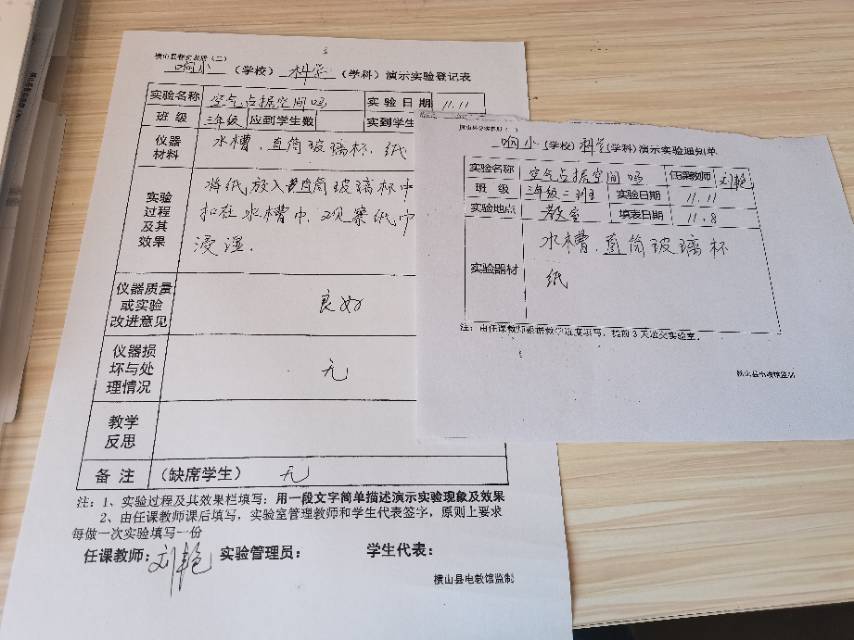 响小（学校）科学（学科）演示实验登记表
实验名称 空气占据空间吗 实验日期 11.11
班 级 三年级 应到学生数 实到学生
仪器材料 水槽、直筒玻璃杯、纸
实验过程及其效果
将纸放入直筒玻璃杯中
扣在水槽中、观察纸巾
浸湿.
仪器质量或实验改进意见 良好
仪器损坏与处理情况 无
教学反思
备 注 （缺席学生） 无
注：1、实验过程及其效果栏填写：用一段文字简单描述演示实验现象及效果
2、由任课教师课后填写，实验室管理教师和学生代表签字，原则上要求
每做一次实验填写一份
任课教师：刘艳 实验管理员： 学生代表：
横山县电教馆监制
响小（学校）科学（学科）演示实验通知单
实验名称 空气占据空间吗 任课教师 刘艳
班 级 三年级二班 实验日期 11.11
实验地点 教室 填表日期 11.8
实验器材 水槽、直筒玻璃杯
纸
注：由任课教师根据教学进度填写，提前3天送交实验室.
横山县电教馆监制